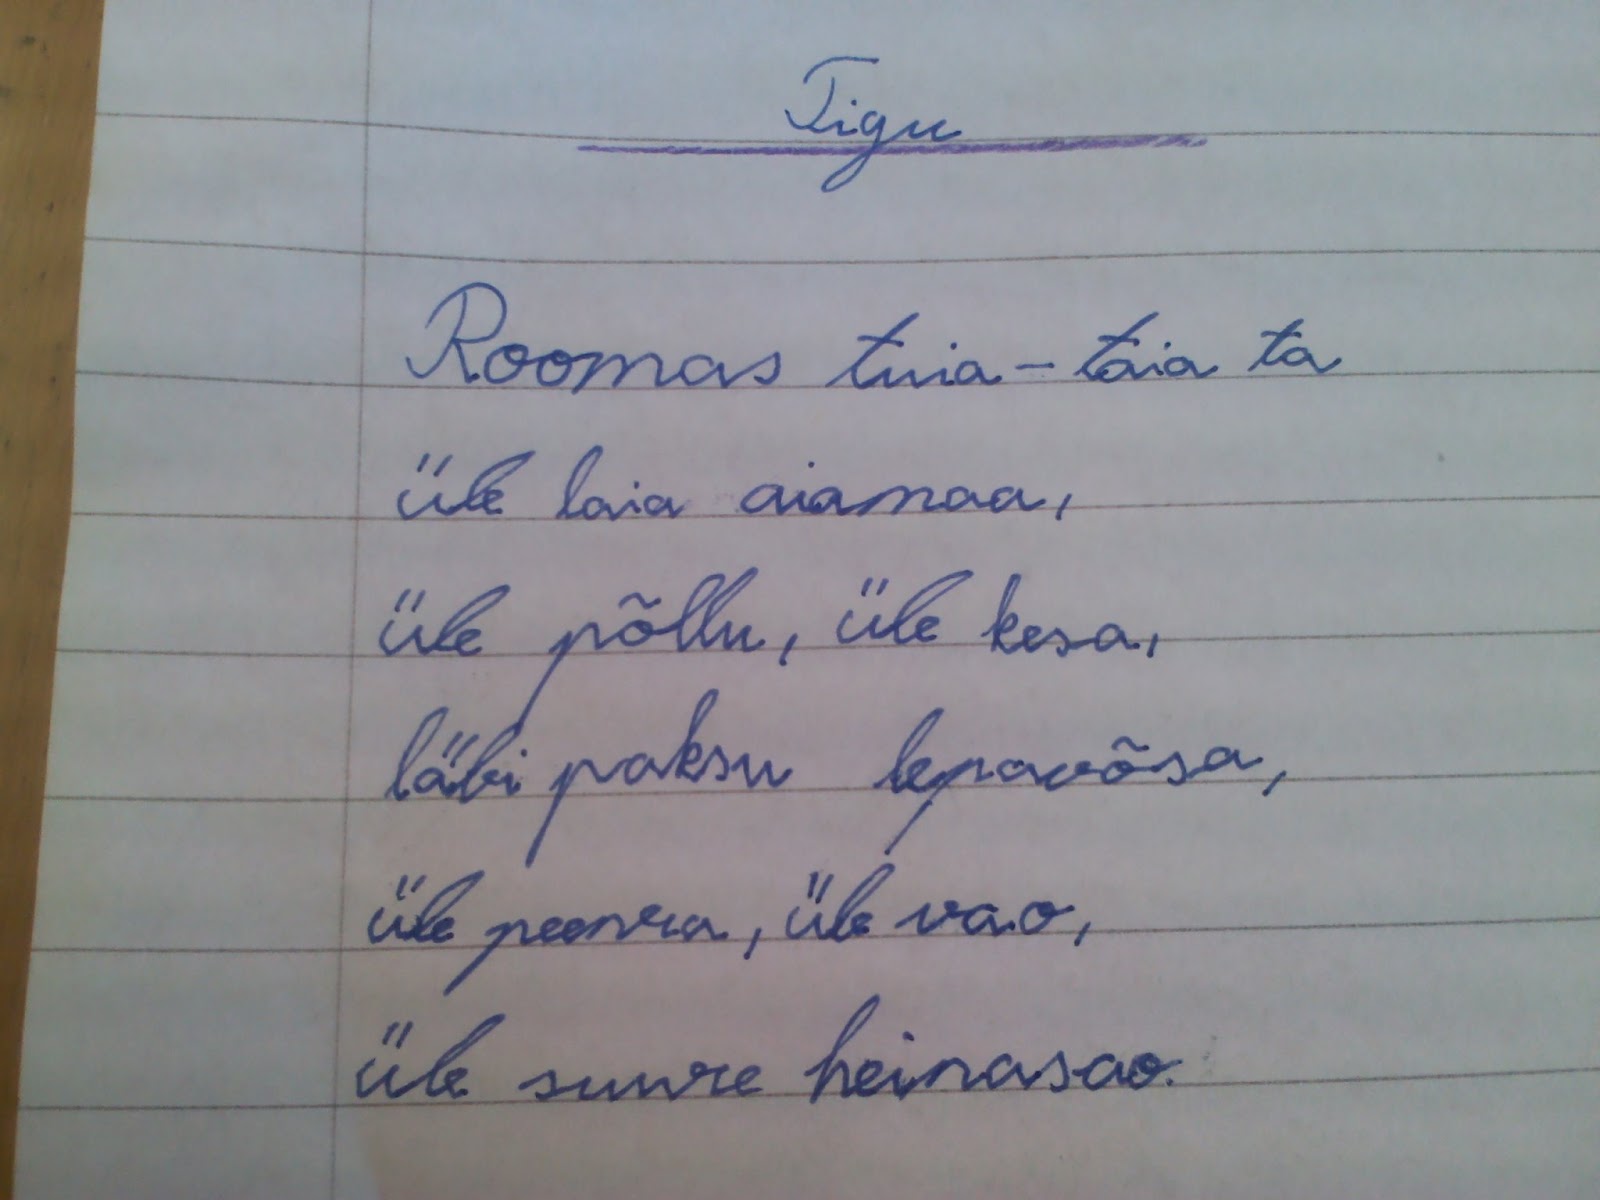 Tigu
Roomas tuia-taia ta
üle laia aiamaa,
üle põllu, üle kesa,
läbi paksu lepavõsa,
üle peenra, üle vao,
üle suure heinasao.